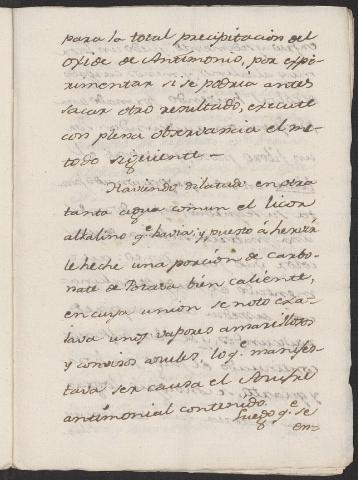 para la total precipitacion del
oxide de Antimonio, por expe-
rimentar si se podria antes
sacar otro resultado, execute
con plena observancia el me-
todo siguiente -
Haviendo dilatado en otra
tanta agua comun el licor
alkalino qe havia, y puesto á hervir
le heche una porcion de carbo-
nate de Potasa bien caliente,
en cuya union se noto exa-
lava unos vapores amarillosos
y azules, lo qe manifes-
tava ser causa el Asufre
antimonial contenido.
Luego qe se
en=